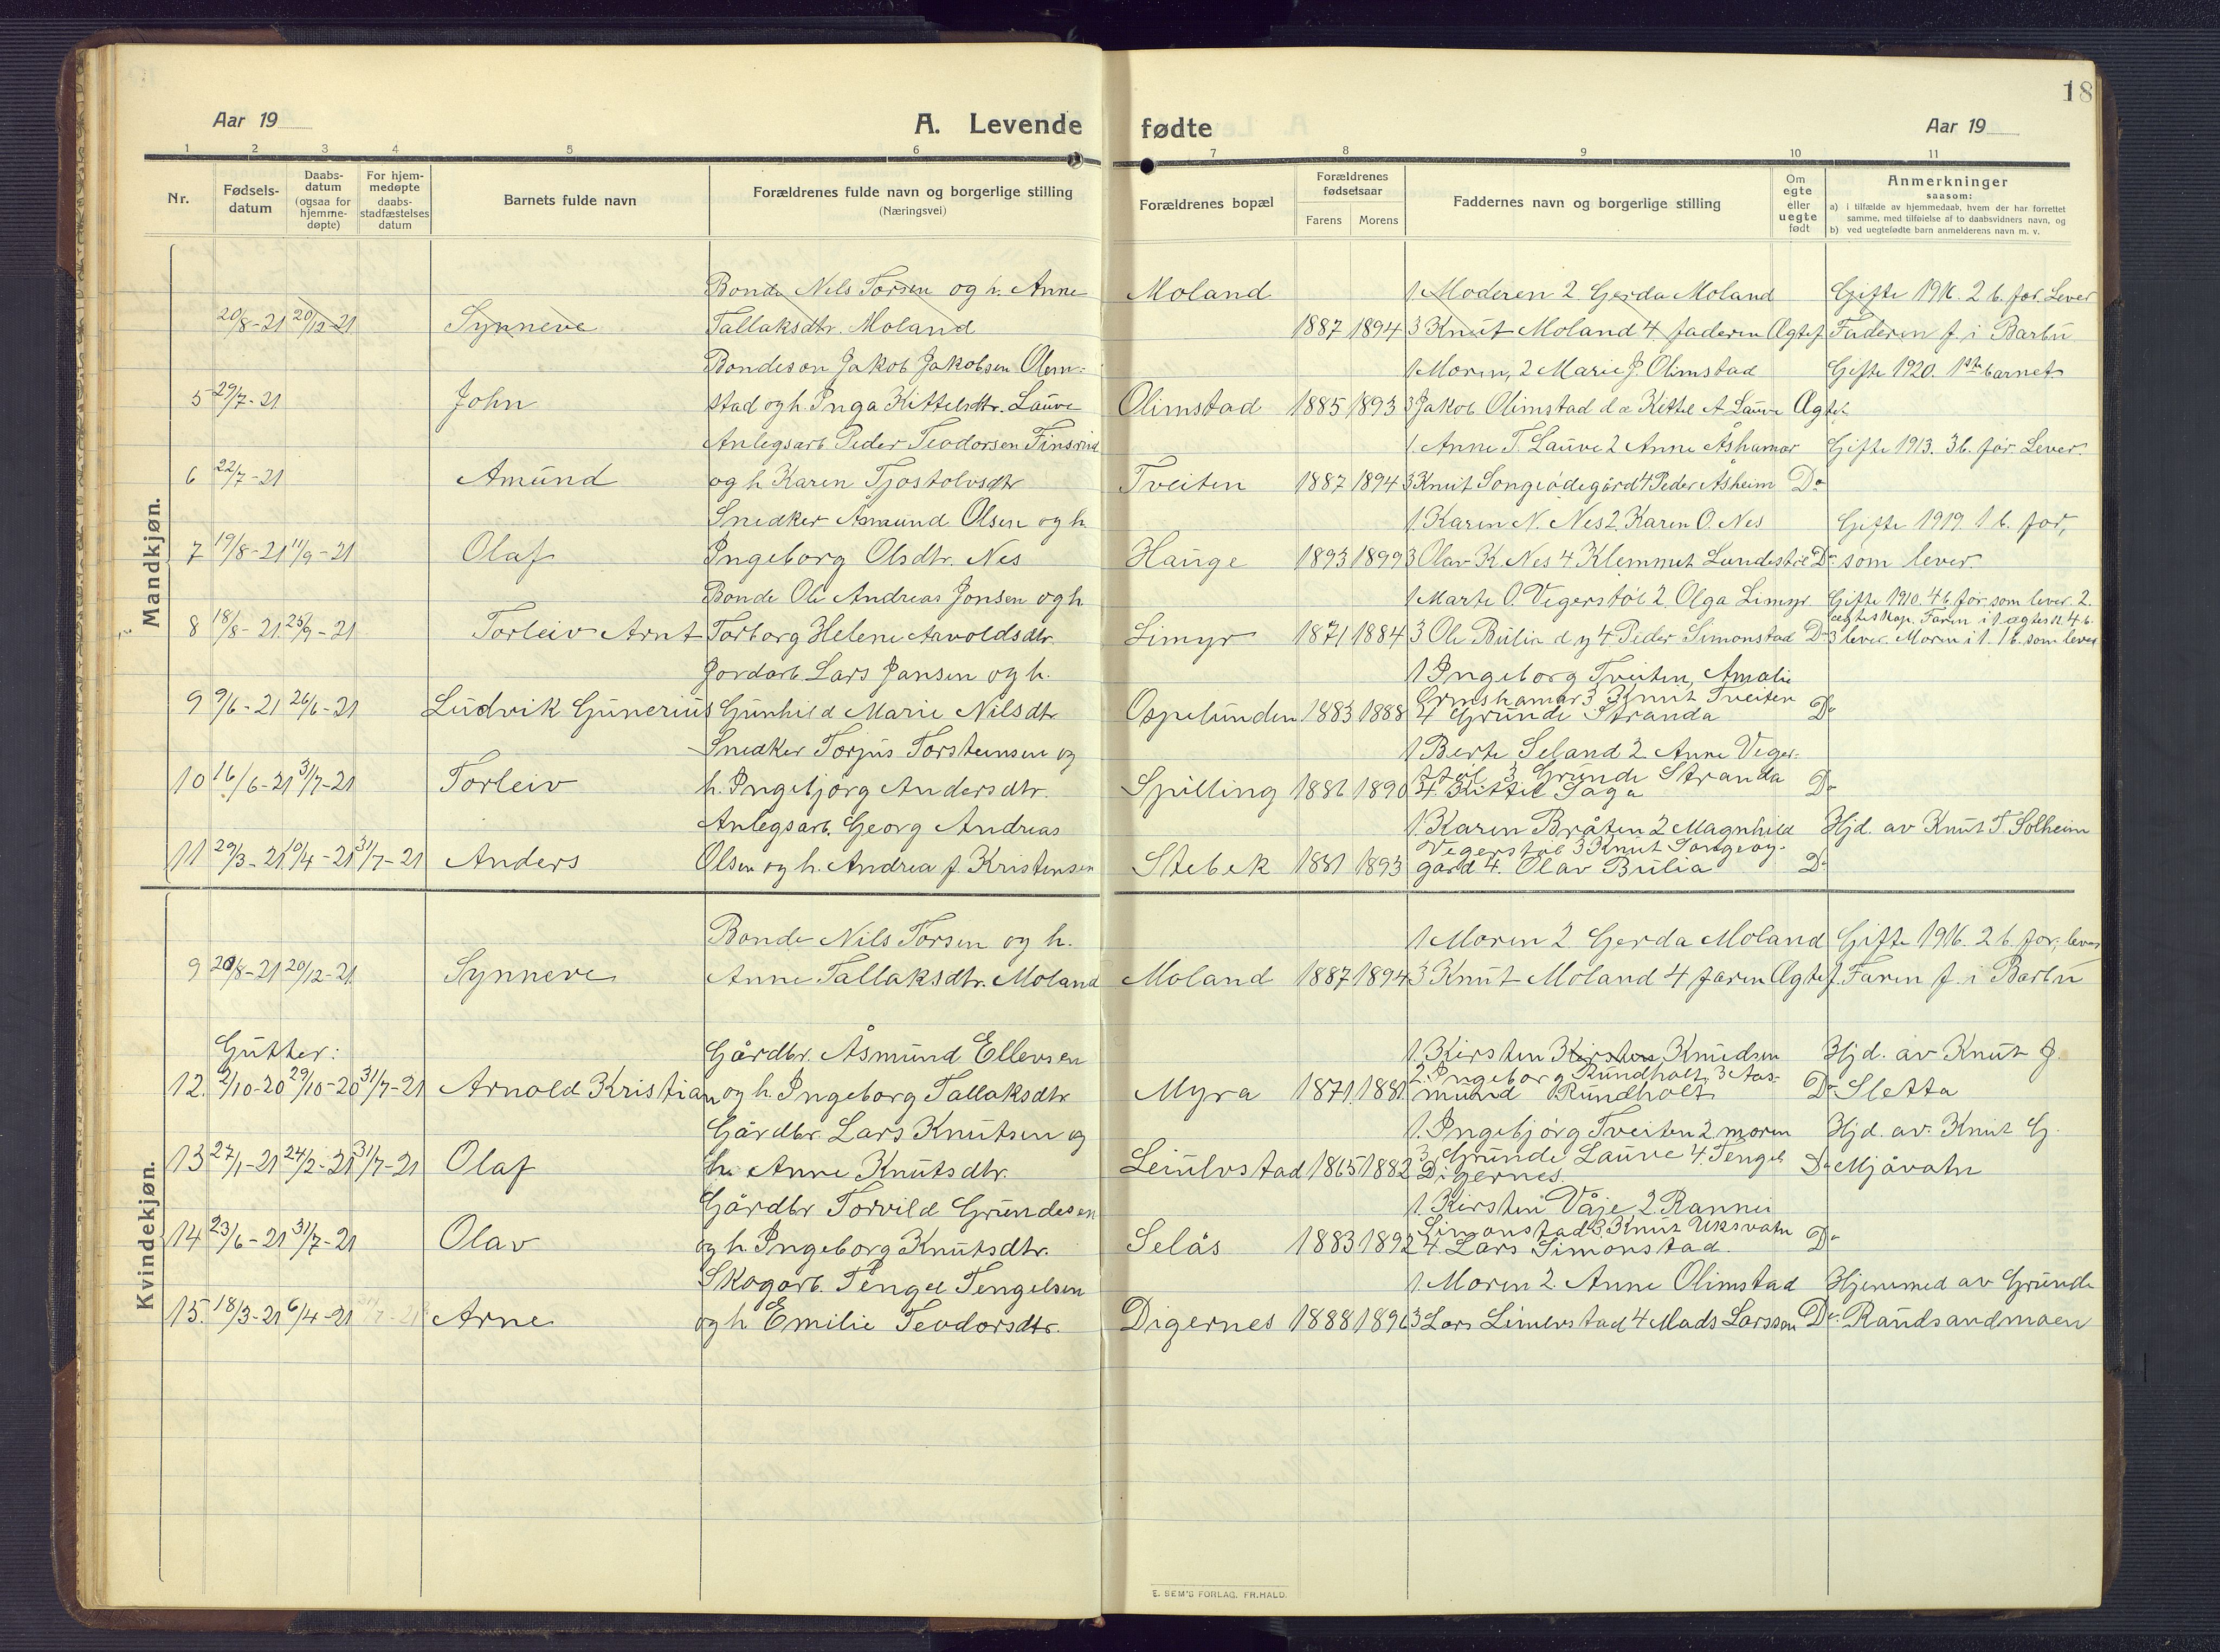 18
Aar 19
A. Levende fødte
Aar 19
1 2 3 4 5 6 7 8 9 10 11
Nr.
Fødsels-
datum
Daabs-
datum
(ogsaa for
hjemme-
døpte)
For hjem-
medøpte
daabs-
stadfæstelses
datum
Barnets fulde navn
Forældrenes fulde navn og borgerlige stilling
(Næringsvei)
Forældrenes bopæl
Forældrenes
fødselsaar
Farens Morens
Faddernes navn og borgerlige stilling
Om
egte
eller
uegte
født
Anmerkninger
saasom:
a) i tilfælde av hjemmedaab, hvem der har forrettet
samme, med tilføielse af to daabsvidners navn, og
b) ved uegtefødte barn anmelderens navn m. v.
Mandkjøn.
Bonde Nils Torsen og h. Anne Moland 1 Moderen 2 Gerda Moland Gifte 1916. 2 b. før. Lever
20/8-21 20/12-21 Synneve Tallaksdtr. Moland 1887 1894 3 Knut Moland 4 faderen Ægtef. Faderen f. i Barbu
Bondeson Jakob Jakobsen Olim- 1 Moren, 2 Marie J. Olimstad Gifte 1920. 1ste barnet.
5 29/7-21 John stad og h. Inga Kittelsdtr. Lauve Olimstad 1885 1893 3 Jakob Olimstad d.æ Kittel A Lauve Ægtef.
Anlegsarb Peder Teodorsen 1 Anne T. Lauve 2 Anne Åshamar Gifte 1913. 3 b. før. Lever.
6 22/7-21 Amund og h Karen Tjostolvsdtr Tveiten 1887 1894 3 Knut Songeødegård 4 Peder Åsheim Do
Snedker Asmund Olsen og h. 1. Karen N. Nes 2. Karen O. Nes Gifte 1919. 1 b. før,
7 19/8-21 11/9-21 Olaf Ingeborg Olsdtr. Nes Hauge 1893 1899 3 Olav K. Nes 4 Klemmet Lundestøl Do som lever.
Bonde Ole Andreas Jonsen og h 1 Marte O. Vegerstøl 2 Olga Limyr Gifte 1910. 4 b. før som lever. 2.
8 18/8-21. 25/9-21 Torleiv Arnt Torborg Helene Arvoldsdtr. Limyr 1871 1884 3 Ole Bulia d y 4 Peder Simonstad Do 3 lever. Moren i 1. 1 b. som lever
Jordarb. Lars Jansen og h. 1 Ingeborg Tveiten, Amalie
9 9/6-21 26/6-21 Ludvik Gunerius Gunhild Marie Nilsdtr Ospelunden 1883 1888 Ormshamar 3 Knut Tveiten
4 Grunde Stranda Do
Snedker Torjus Torsteinsen og 1 Berte Seland 2 Anne Veger-
10 16/6-21 31/7-21 Torleiv h. Ingebjørg Andersdtr. Spilling 1886 1890 støl 3 Grunde Stranda
4. Kittil Saga Do
Anlegsarb. Georg Andreas 1. Karen Bråten 2 Magnhild Hjd. av Knut T. Solheim
11 29/3-21 10/4-21 31/7-21 Anders Olsen og h. Andrea f. Kristensen Stebek 1881 1893 Vegerstøl 3 Knut Songeøy-
gård 4. Olav Bulia Do
Kvindekjøn.
Bonde Nils Torsen og h. 1 Moren 2 Gerda Moland Gifte 1916. 2 b. før, lever
9 20/8-21 20/12-21. Synneve Anne Tallaksdtr. Moland Moland 1887 1894 3 Knut Moland 4 faren Ægtef. Faren f. i Barbu
Gutter: Gårdbr. Åsmund Ellevsen 1. Kirsten Kirsten Knudsen Hjd. av Knut J.
12. 2/10-20 29/10-20 31/7-21 Arnold Kristian og h. Ingeborg Tallaksdtr Myra 1871. 1881. 2. Ingeborg Rundholt, 3 Aas-
mund Rundholt Do Sletta
Gårdbr. Lars Knutsen og 1. Ingebjørg Tveiten 2 moren Hjd. av. Knut G.
13 27/1-21 24/2-21 31/7-21 Olaf h. Anne Knutsdtr. Leiulvstad 1865 1882 3 Grunde Lauve 4. Tengel
Digernes. Do Mjåvatn
Gårdbr Torvild Grundesen 1. Kirsten Våje 2 Rannei
14 23/6-21 31/7-21 Olav og h. Ingeborg Knutsdtr. Selås 1883 1892 Simonstad 3. Knut Uksvatn
4. Lars Simonstad. Do
Skogarb. Tengel Tengelsen 1. Moren 2. Anne Olimstad Hjemmed av Grunde
15. 18/3-21 6/4-21 Arne og h Emilie Teodorsdtr. Digernes 1888 1896 3 Lars 4 Mads Larssen Do. Raudsandmoen
E. SEM'S FORLAG, FR.HALD.